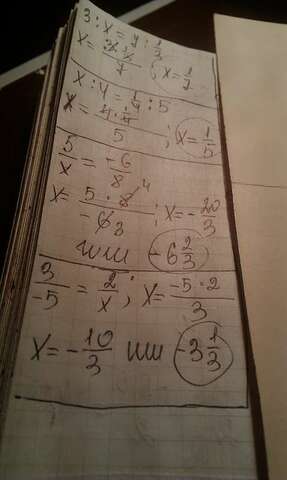 3 : x = 7 : 1/3
x = 3 · 1/3 / 7 ; x = 1/7
x : 4 = 1/4 : 5
x = 4 · 1/4 / 5 ; x = 1/5
5/x = -6/8
x = 5 · 8 4 / -6 3 ; x = -20/3
или -6 2/3
3/-5 = 2/x ; x = -5 · 2 / 3
x = -10/3 или -3 1/3